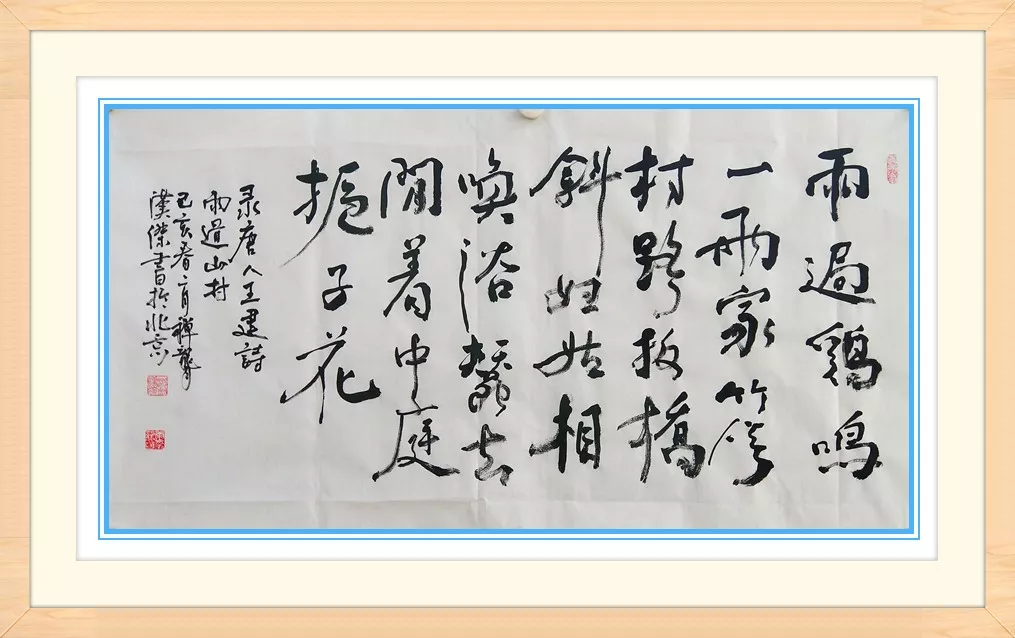 雨過鷄鳴
一兩家竹溪
村路板橋
斜妇姑相
喚浴蠶去
閒着中庭
栀子花
录唐人王建詩
雨過山村
己亥春二月禪
漢傑書於北京